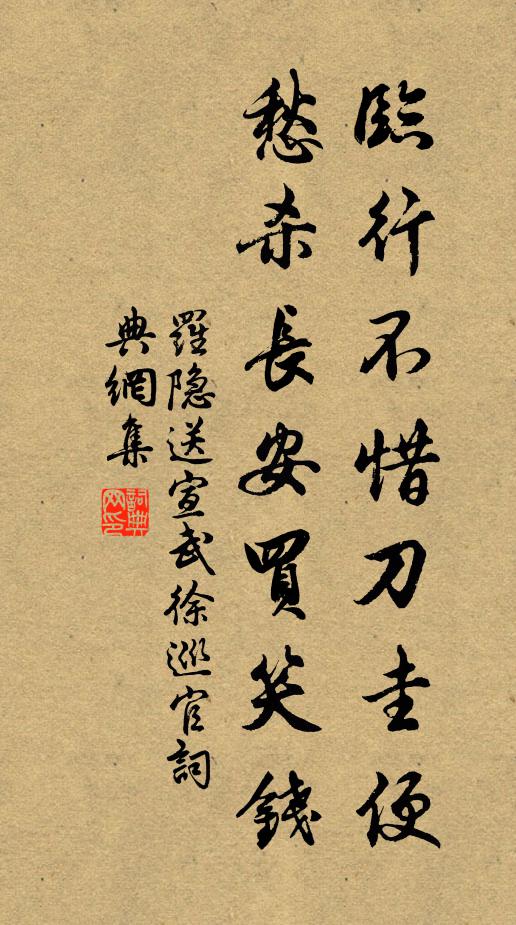 臨行不惜刀圭便
愁杀長安買笑錢
羅隐送宣武徐巡官詞
典網集
詞典网印